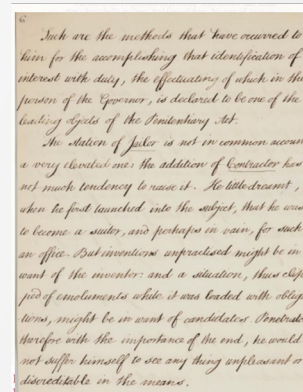 6
Such are the methods that have occurred to
him for the accomplishing that identification of
interest with duty, the effectuating of which in the
person of the Governor, is declared to be one of the
leading objects of the Penitentiary Act.
The station of Jailer is not in common accoun
a very elevated one: the addition of Contractor has
not much tendency to raise it. He little dreamt,
when he first launched into the subject, that he was
to become a suitor, and perhaps in vain, for such
an office. But inventions unpractised might be in
want of the inventor: and a situation, thus clip
ped of emoluments while it was loaded with oblig
tions, might be in want of candidates. Penetrate
therefore with the importance of the end, he would
not suffer himself to see any thing unpleasant or
discreditable in the means.